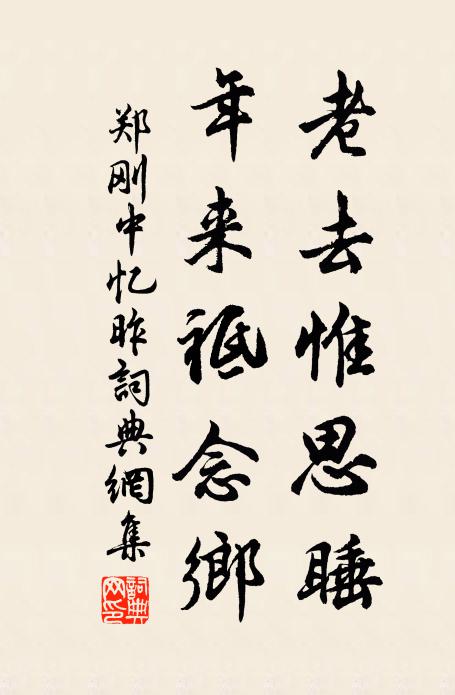 老去惟思睡
年来祗念鄉
郑刚中忆昨詞典網集
詞典网印